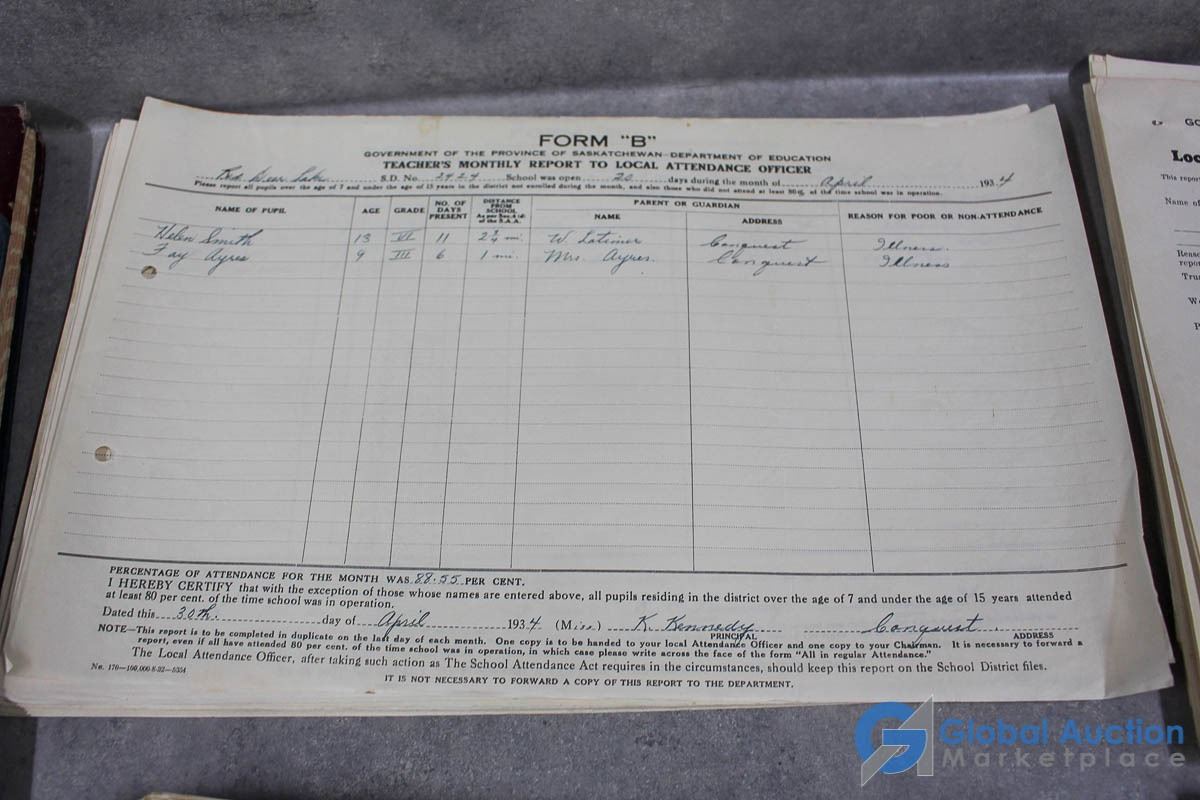 FORM "B"
GOVERNMENT OF THE PROVINCE OF SASKATCHEWAN—DEPARTMENT OF EDUCATION
TEACHER'S MONTHLY REPORT TO LOCAL ATTENDANCE OFFICER
Red Deer Lake S.D. No. 2424 School was open 20 days during the month of April 1934
Please report all pupils over the age of 7 and under the age of 15 years in the district not enrolled during the month, and also those who did not attend at least 80% of the time school was in operation.
NAME OF PUPIL AGE GRADE NO. OF DAYS PRESENT DISTANCE FROM SCHOOL As per Sec. 4 (d) of the S.A.A. PARENT OR GUARDIAN NAME ADDRESS REASON FOR POOR OR NON-ATTENDANCE
Helen Smith 13 VI 11 2 3/4 mi. W. Latimer Conquest Illness.
Fay Ayres 9 III 6 1 mi. Mrs. Ayres. Conquest Illness
PERCENTAGE OF ATTENDANCE FOR THE MONTH WAS 88.55 PER CENT.
I HEREBY CERTIFY that with the exception of those whose names are entered above, all pupils residing in the district over the age of 7 and under the age of 15 years attended
at least 80 per cent. of the time school was in operation.
Dated this 30th. day of April 1934 (Miss) K. Kennedy Conquest.
PRINCIPAL ADDRESS
NOTE—This report is to be completed in duplicate on the last day of each month. One copy is to be handed to your local Attendance Officer and one copy to your Chairman. It is necessary to forward a
report, even if all have attended 80 per cent. of the time school was in operation, in which case please write across the face of the form "All in regular Attendance."
The Local Attendance Officer, after taking such action as The School Attendance Act requires in the circumstances, should keep this report on the School District files.
No. 170—100,000-8-32—5354
IT IS NOT NECESSARY TO FORWARD A COPY OF THIS REPORT TO THE DEPARTMENT.
GO
Loc
This repor
Name of
Reaso
repor
Tru
W
P
Global Auction
Marketplace